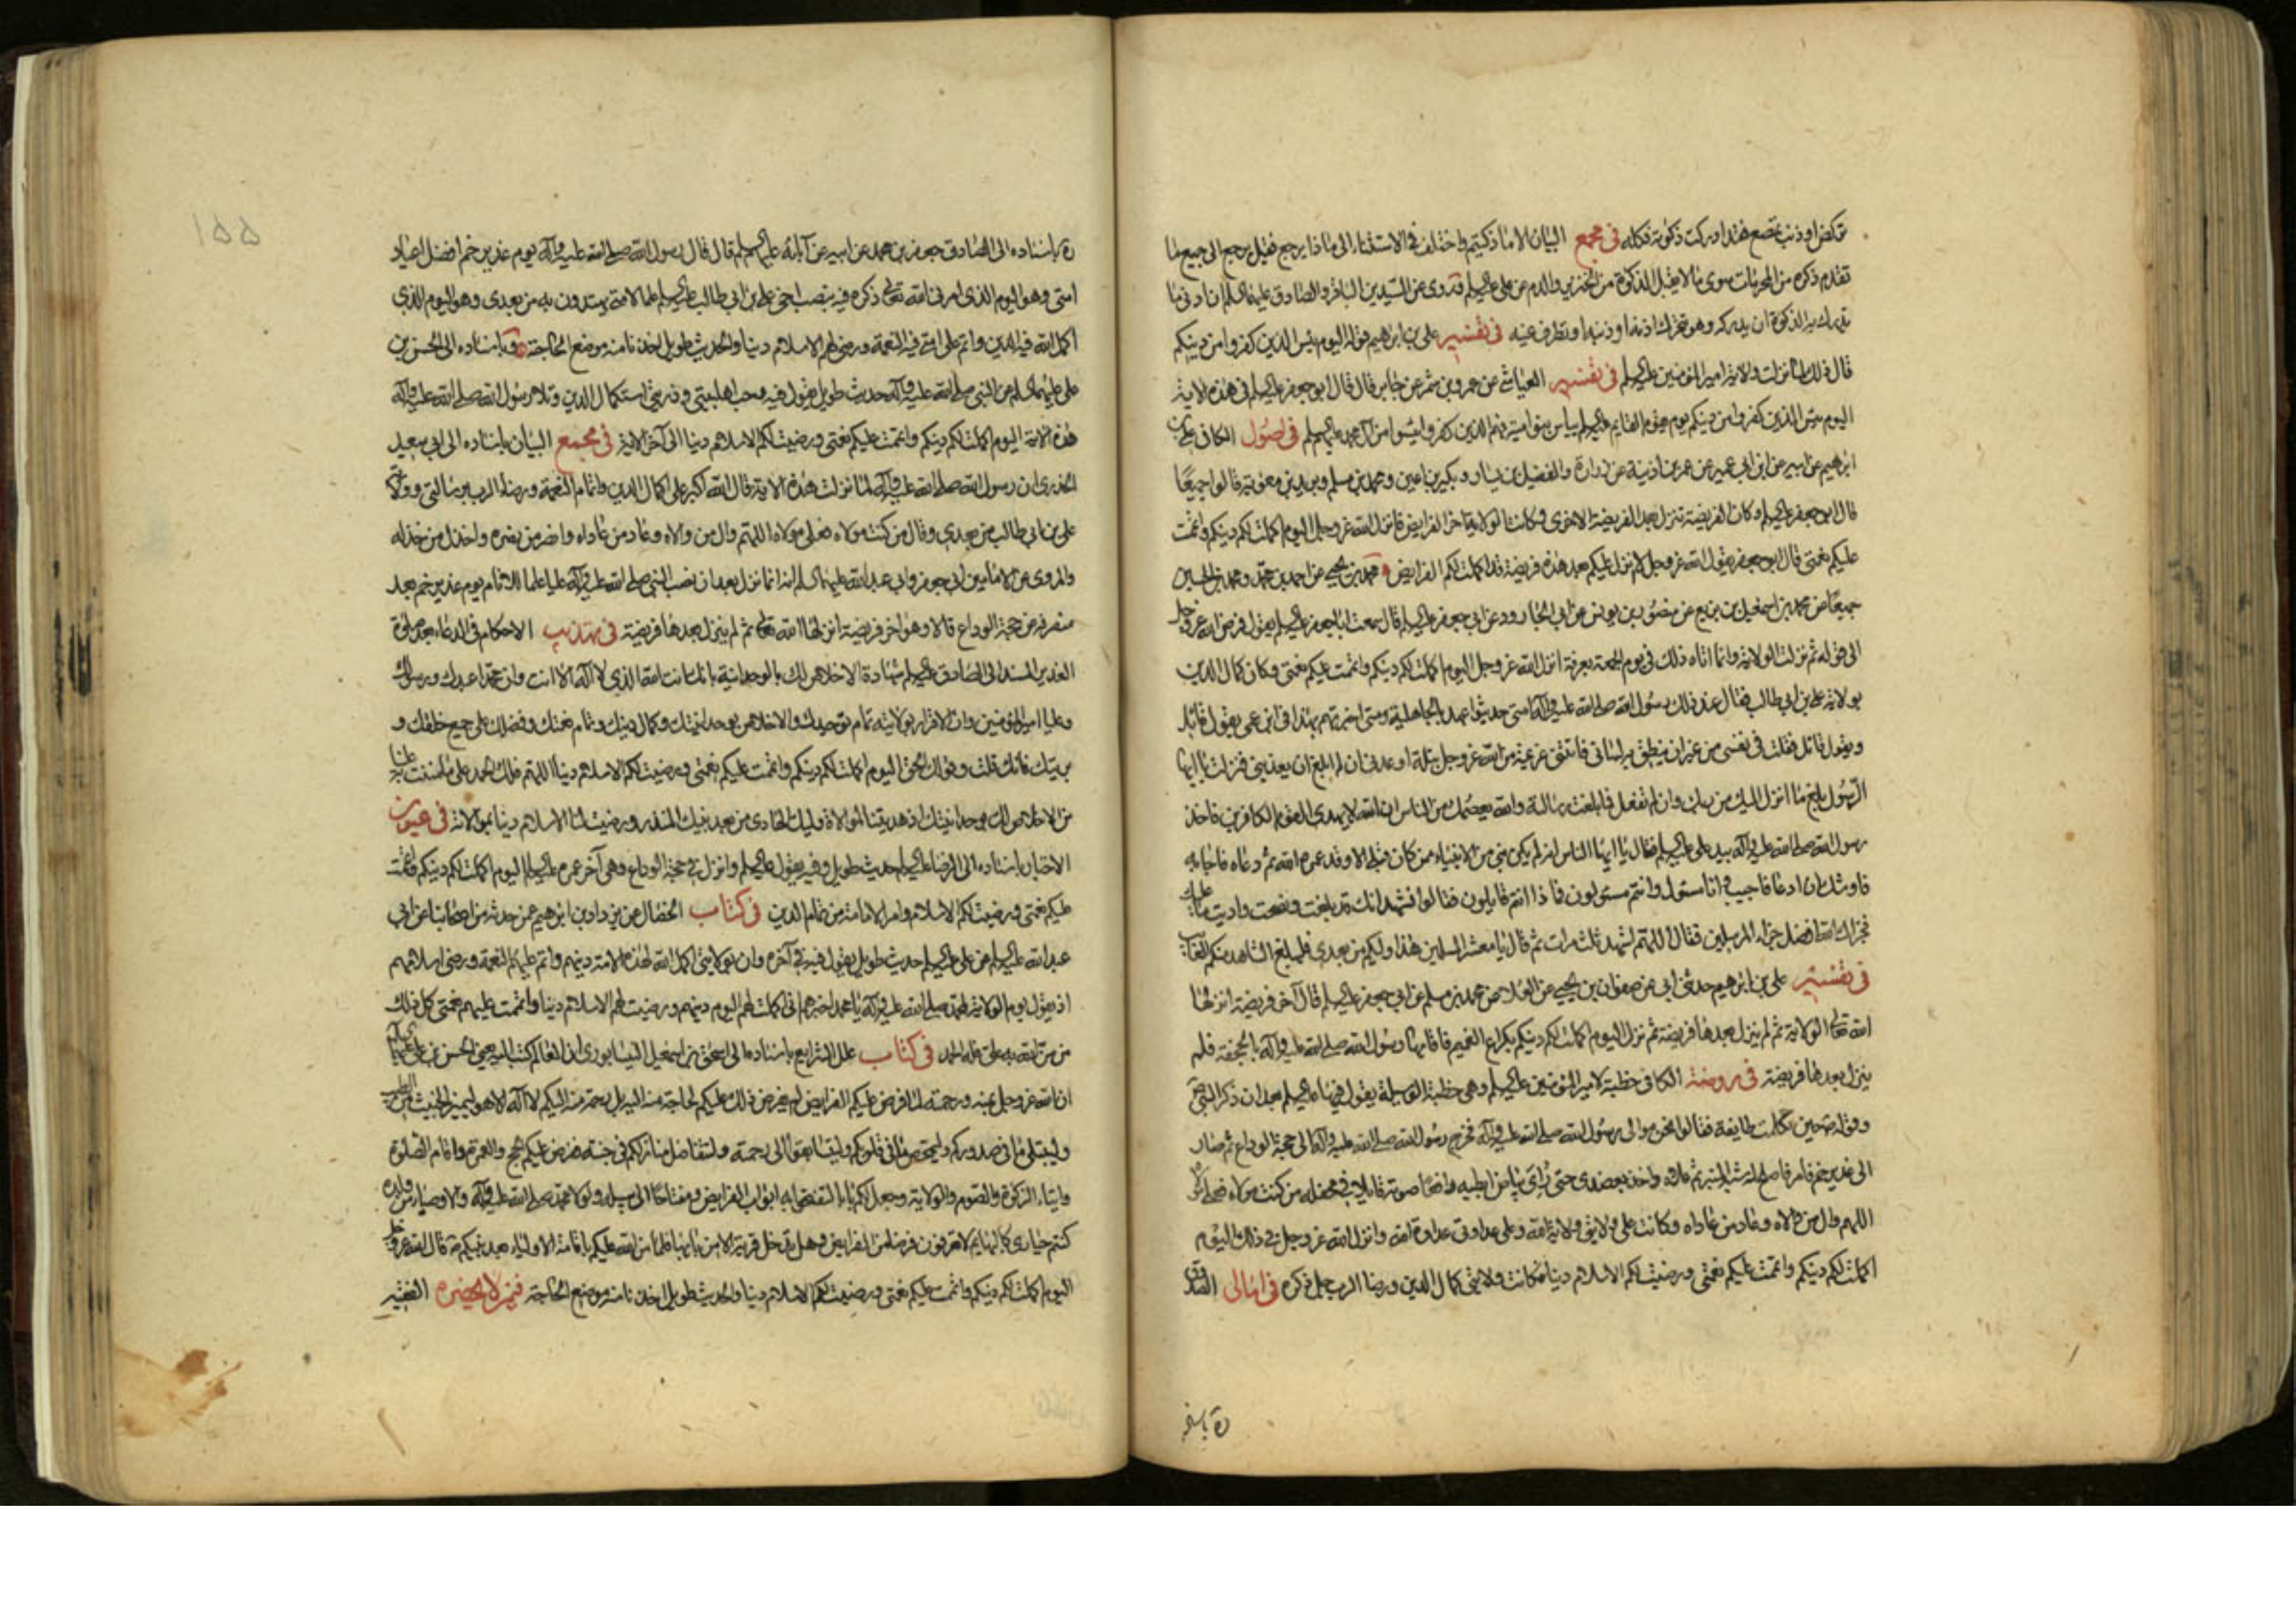 تركض او ذنب يمصع فقد ادركت ذكوته فكله في مجمع البيان الا ما ذكيتم واختلف في الاستثناء الى ماذا يرجع فقيل يرجع الى جميع ما
تقدم ذكره من المحرمات سوى ما لا يقبل الذكوة من الخنزير والدم عن علي عليه السلم وروى عن السيدين الباقر والصادق عليهما السلم ان ادنى ما
يدرك به الذكوة ان يدركه وهو يتحرك اذنه او ذنبه او يطرف عينه في تفسير علي بن ابرهيم قوله اليوم يئس الذين كفروا من دينكم
قال ذلك لما نزلت ولاية امير المؤمنين عليه السلم في تفسير العياشي عن عمرو بن شمر عن جابر قال قال ابو جعفر عليه السلم في هذه الاية
اليوم يئس الذين كفروا من دينكم يوم يقوم القايم عليه السلم يئس بنو امية فهم الذين كفروا يئسوا من آل محمد عليهم السلم في اصول الكافي علي بن
ابرهيم عن ابيه عن ابن ابي عمير عن عمر بن اذينة عن زرارة والفضيل بن يسار وبكير بن اعين ومحمد بن مسلم وبريد بن معوية قالوا جميعًا
قال ابو جعفر عليه السلم وكان الفريضة تنزل بعد الفريضة الاخرى وكانت الولاية آخر الفرايض فانزل الله عز وجل اليوم اكملت لكم دينكم واتممت
عليكم نعمتي قال ابو جعفر يقول الله عز وجل لا انزل عليكم بعد هذه فريضة قد اكملت لكم الفرايض محمد بن يحيى عن احمد بن محمد ومحمد بن الحسين
جميعًا عن محمد بن اسمعيل بن بزيع عن منصور بن يونس عن ابي الجارود عن ابي جعفر عليه السلم قال سمعت ابا جعفر عليه السلم يقول فرض الله عز وجل
الى قوله ثم نزلت الولاية وانما اتاه ذلك في يوم الجمعة بعرفة انزل الله عز وجل اليوم اكملت لكم دينكم واتممت عليكم نعمتي وكان كمال الدين
بولاية علي بن ابي طالب فقال عند ذلك رسول الله صلى الله عليه وآله امتي حديثوا عهد بالجاهلية ومتى اخبرتهم بهذا في ابن عمي يقول قائل
ويقول قائل فقلت في نفسي من غير ان ينطق به لساني فاتتني عزيمة من الله عز وجل بتلة اوعدني ان لم ابلغ ان يعذبني فنزلت يا ايها
الرسول بلغ ما انزل اليك من ربك وان لم تفعل فما بلغت رسالته والله يعصمك من الناس ان الله لا يهدي القوم الكافرين فاخذ
رسول الله صلى الله عليه وآله بيد علي عليه السلم فقال يا ايها الناس انه لم يكن نبي من الانبياء ممن كان قبلي الا وقد عمره الله ثم دعاه فاجابه
فاوشك ان ادعا فاجيب وانا مسئول وانتم مسئولون فماذا انتم قايلون فقالوا نشهد انك قد بلغت ونصحت واديت ما عليك
فجزاك الله افضل جزاء المرسلين فقال اللهم اشهد ثلث مرات ثم قال يا معشر المسلمين هذا وليكم من بعدي فليبلغ الشاهد منكم الغايب
في تفسير علي بن ابرهيم حدثني ابي عن صفوان بن يحيى عن العلا عن محمد بن مسلم عن ابي جعفر عليه السلم قال آخر فريضة انزلها
الله تعالى الولاية ثم لم ينزل بعدها فريضة ثم نزل اليوم اكملت لكم دينكم بكراع الغميم فاقامها رسول الله صلى الله عليه وآله بالجحفة فلم
ينزل بعدها فريضة في روضة الكافي خطبة لامير المؤمنين عليه السلم وهي خطبة الوسيلة يقول فيها عليه السلم بعد ان ذكر النبي
وقوله حين تكلمت طايفة فقالوا نحن موالي رسول الله صلى الله عليه وآله فخرج رسول الله صلى الله عليه وآله الى حجة الوداع ثم صار
الى غدير خم فامر فاصلح له شبه المنبر ثم علاه واخذ بعضدي حتى رُاي بياض ابطيه رافعًا صوته قايلا في محفله من كنت مولاه فعلي مولاه
اللهم وال من والاه وعاد من عاداه وكانت على ولايتي ولاية الله وعلى عداوتي عداوة الله وانزل الله عز وجل في ذلك اليوم
اكملت لكم دينكم واتممت عليكم نعمتي ورضيت لكم الاسلام دينا فكانت ولايتي كمال الدين ورضا الرب جل ذكره في امالي الصدوق
ره باسنا
١٥٥
ره باسناده الى الصادق جعفر بن محمد عن ابيه عن آبائه عليهم السلم قال قال رسول الله صلى الله عليه وآله يوم غدير خم افضل اعياد
امتي وهو اليوم الذي امرني الله تعالى ذكره فيه بنصب اخي علي بن ابي طالب عليه السلم علما لامتي يهتدون به من بعدي وهو اليوم الذي
اكمل الله فيه الدين واتم على امتي فيه النعمة ورضي لهم الاسلام دينا والحديث طويل اخذنا منه موضع الحاجة وباسناده الى الحسن بن
علي عليهما السلم عن النبي صلى الله عليه وآله حديث طويل يقول فيه وحب اهلبيتي وذريتي استكمال الدين وتلا رسول الله صلى الله عليه وآله
هذه الاية اليوم اكملت لكم دينكم واتممت عليكم نعمتي ورضيت لكم الاسلام دينا الى آخر الاية في مجمع البيان باسناده الى ابي سعيد
الخدري ان رسول الله صلى الله عليه وآله لما نزلت هذه الاية قال الله اكبر على اكمال الدين واتمام النعمة ورضا الرب برسالتي وولاية
علي بن ابي طالب من بعدي وقال من كنت مولاه فعلي مولاه اللهم وال من والاه وعاد من عاداه وانصر من نصره واخذل من خذله
والمروي عن الامامين ابي جعفر وابي عبد الله عليهما السلم انه انما نزل بعد ان نصب النبي صلى الله عليه وآله عليا علما للانام يوم غدير خم بعد
منصرفه عن حجة الوداع قالا وهو آخر فريضة انزلها الله تعالى ثم لم ينزل بعدها فريضة في تهذيب الاحكام في الدعاء بعد صلوة
الغدير المسند الى الصادق عليه السلم شهادة الاخلاص لك بالوحدانية بانك انت الله الذي لا آله الا انت وان محمدا عبدك ورسولك
وعليا امير المؤمنين وان الاقرار بولايته تمام توحيدك والاخلاص بوحدانيتك وكمال دينك وتمام نعمتك وفضلك على جميع خلقك و
بريتك فانك قلت وقولك الحق اليوم اكملت لكم دينكم واتممت عليكم نعمتي ورضيت لكم الاسلام دينا اللهم فلك الحمد على ما مننت به علينا
من الاخلاص لك بوحدانيتك اذ هديتنا لموالاة وليك الهادي من بعد نبيك المنذر ورضيت لنا الاسلام دينا بموالاته في عيون
الاخبار باسناده الى الرضا عليه السلم حديث طويل وفيه يقول عليه السلم وانزل في حجة الوداع وهي آخر عمره عليه السلم اليوم اكملت لكم دينكم واتممت
عليكم نعمتي ورضيت لكم الاسلام وامر الامامة من تمام الدين في كتاب الخصال عن يزداد بن ابرهيم عمن حدثه من اصحابنا عن ابي
عبد الله عليه السلم عن علي عليه السلم حديث طويل يقول فيه في آخره وان بولايتي اكمل الله لهذه الامة دينهم واتم عليهم النعمة ورضي اسلامهم
اذ يقول يوم الولاية لمحمد صلى الله عليه وآله يا محمد اخبرهم اني اكملت لهم اليوم دينهم ورضيت لهم الاسلام دينا واتممت عليهم نعمتي كل ذلك
من من الله به علي فله الحمد في كتاب علل الشرايع باسناده الى اسحق بن اسمعيل النيسابوري ان العالم كتب اليه يعني الحسن بن علي عليهما السلم
ان الله عز وجل بمنه ورحمته لما فرض عليكم الفرايض لم يفرض ذلك عليكم لحاجة منه اليه بل رحمة منه اليكم لا آله الا هو ليميز الخبيث من الطيب
وليبتلي ما في صدوركم وليمحص ما في قلوبكم وليتسابقوا الى رحمته ولتتفاضل منازلكم في جنته ففرض عليكم الحج والعمرة واقام الصلوة
وايتاء الزكوة والصوم والولاية وجعل لكم بابا لتفتحوا به ابواب الفرايض ومفتاحًا الى سبيله ولولا محمد صلى الله عليه وآله والاوصياء من ولده
كنتم حيارى كالبهايم لا تعرفون فرضا من الفرايض وهل تدخل قرية الا من بابها فلما من الله عليكم باقامة الاولياء بعد نبيكم قال الله عز وجل
اليوم اكملت لكم دينكم واتممت عليكم نعمتي ورضيت لكم الاسلام دينا والحديث طويل اخذنا منه موضع الحاجة فيمن لا يحضره الفقيه